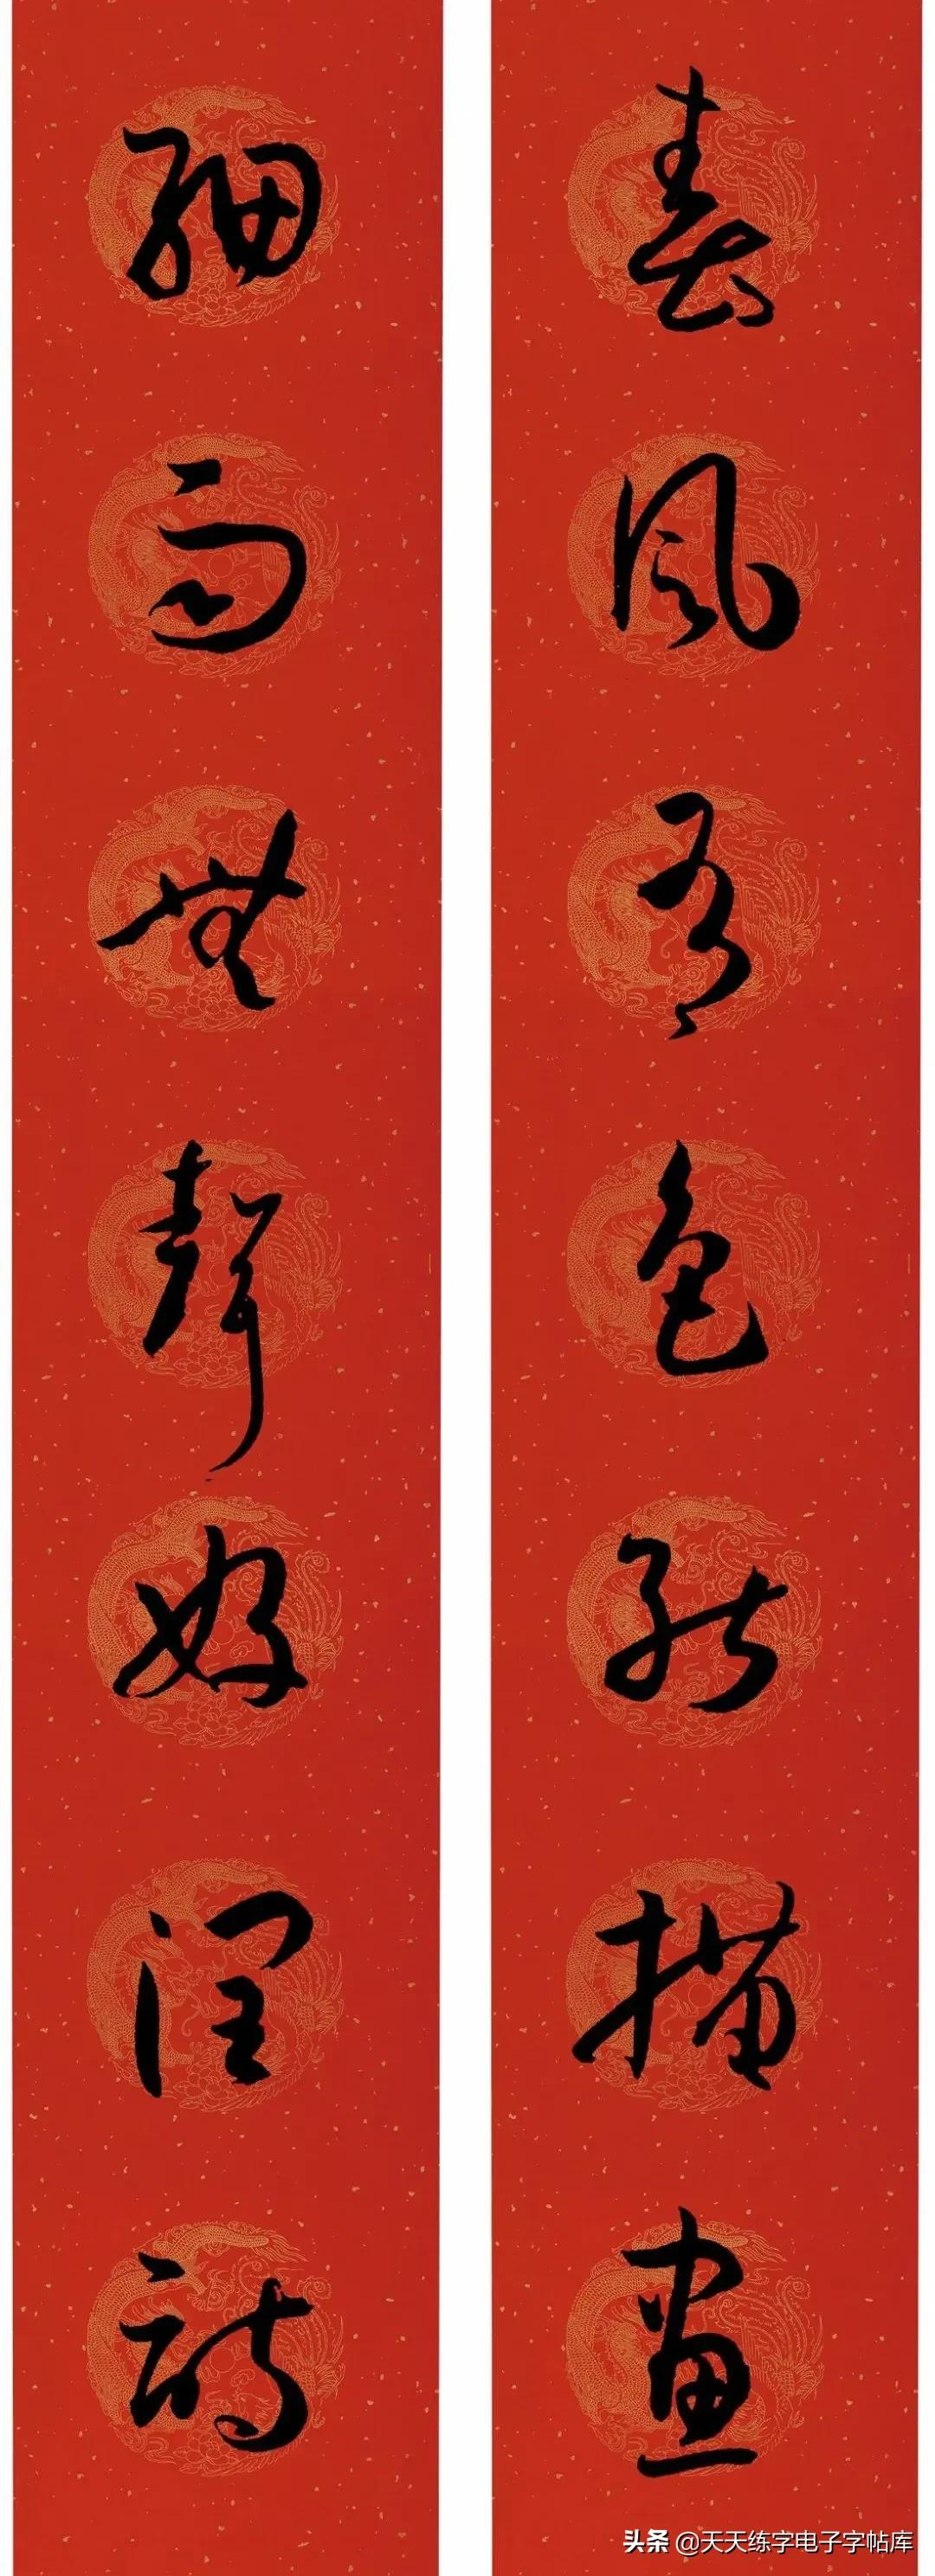 春風有色能描畫
細雨無聲好潤詩
头条 @天天练字电子字帖库